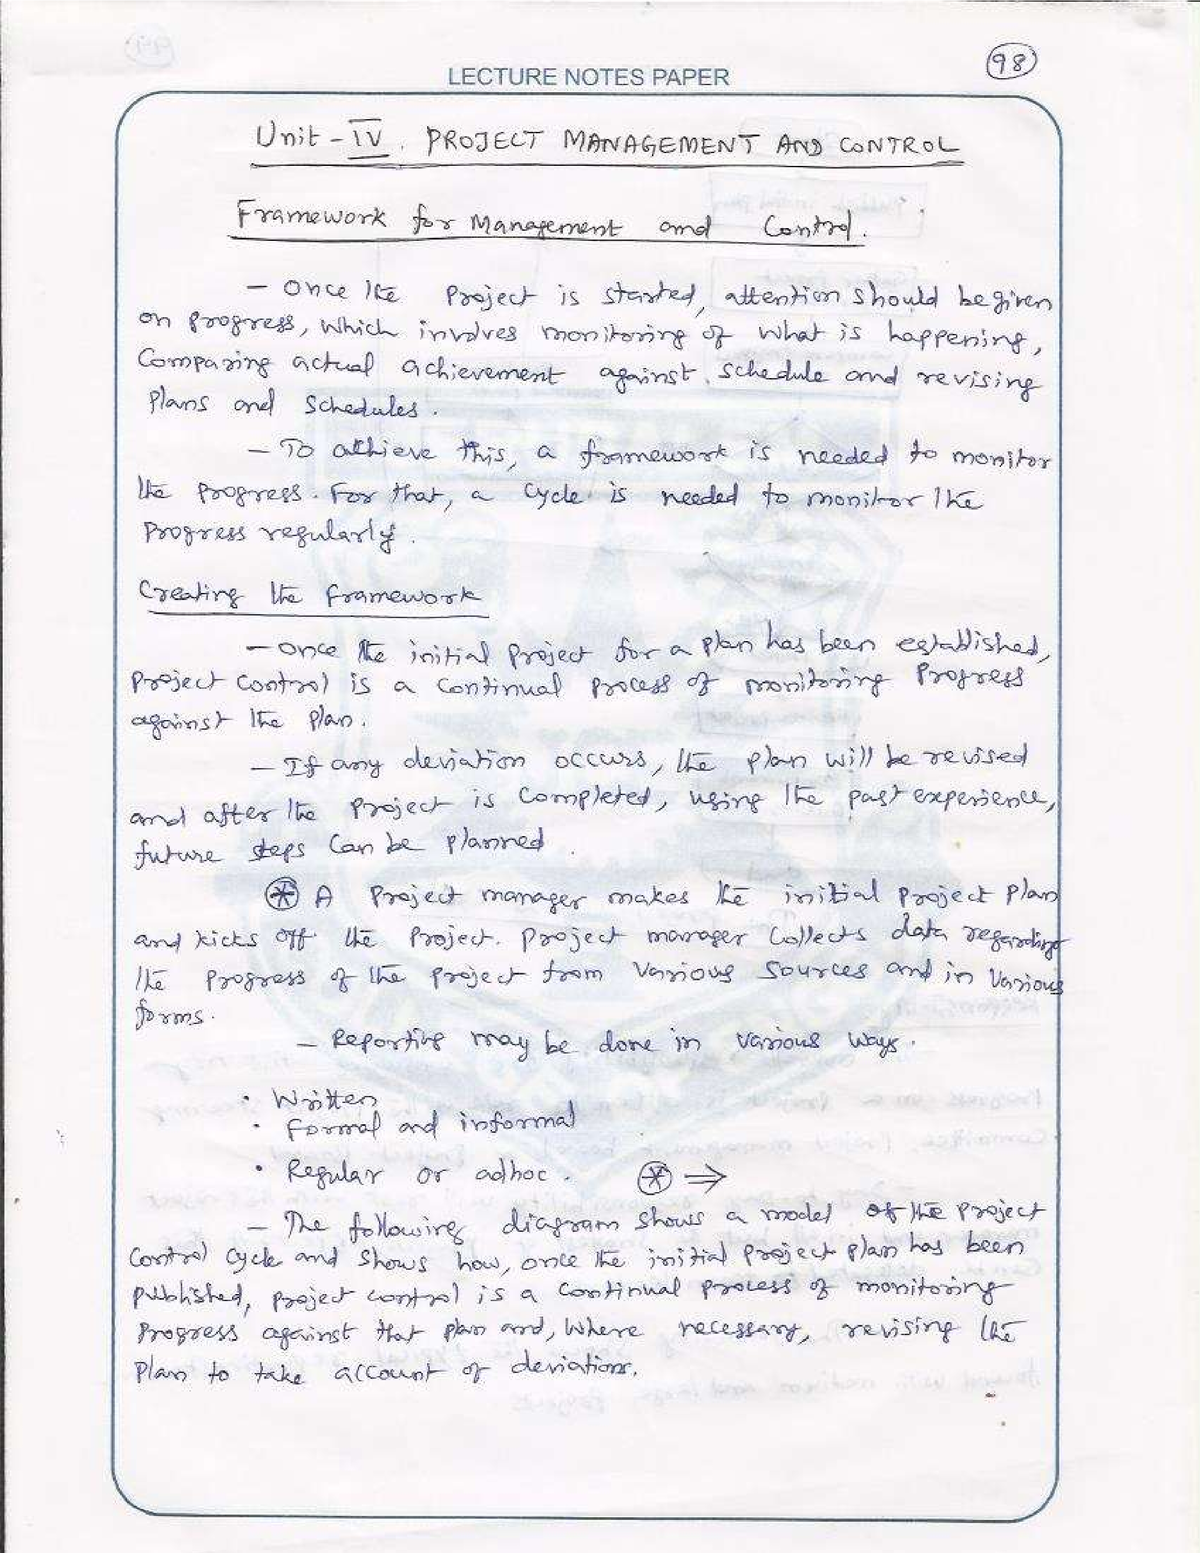 98
LECTURE NOTES PAPER
Unit - IV. PROJECT MANAGEMENT AND CONTROL
Framework for Management and Control.
- Once the Project is started, attention should be given
on progress, which involves monitoring of what is happening,
Comparing actual achievement against schedule and revising
Plans and schedules.
- To achieve this, a framework is needed to monitor
the progress. For that, a cycle is needed to monitor the
Progress regularly.
Creating the framework
- Once the initial project for a plan has been established,
Project control is a continual process of monitoring Progress
against the plan.
- If any deviation occurs, the plan will be revised
and after the project is completed, using the past experience,
future steps can be planned.
⊛ A Project manager makes the initial project plan
and kicks off the project. Project manager collects data regarding
the progress of the project from various sources and in various
forms.
- Reporting may be done in various ways.
• Written
• Formal and informal
• Regular or adhoc. ⊛ ⇒
- The following diagram shows a model of the project
control cycle and shows how, once the initial project plan has been
published, project control is a continual process of monitoring
Progress against that plan and, where necessary, revising the
Plan to take account of deviations.